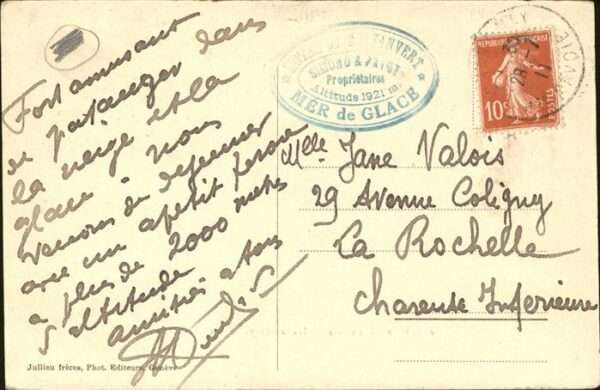 Fort amusant
de patauger dans
la neige et la
glace - nous
venons de dejeuner
avec un apetit feroce
a plus de 2000 metres
d'altitude
amitiés a tous
MONTANVERT
SECORD & PAYOT
Propriétaires
Altitude 1921 m.
MER de GLACE
REPUBLIQUE FRANÇAISE
10c
POSTES
Mlle Jane Valois
29 Avenue Coligny
La Rochelle
Charente Inferieure
Jullien frères, Phot. Editeurs, Genève